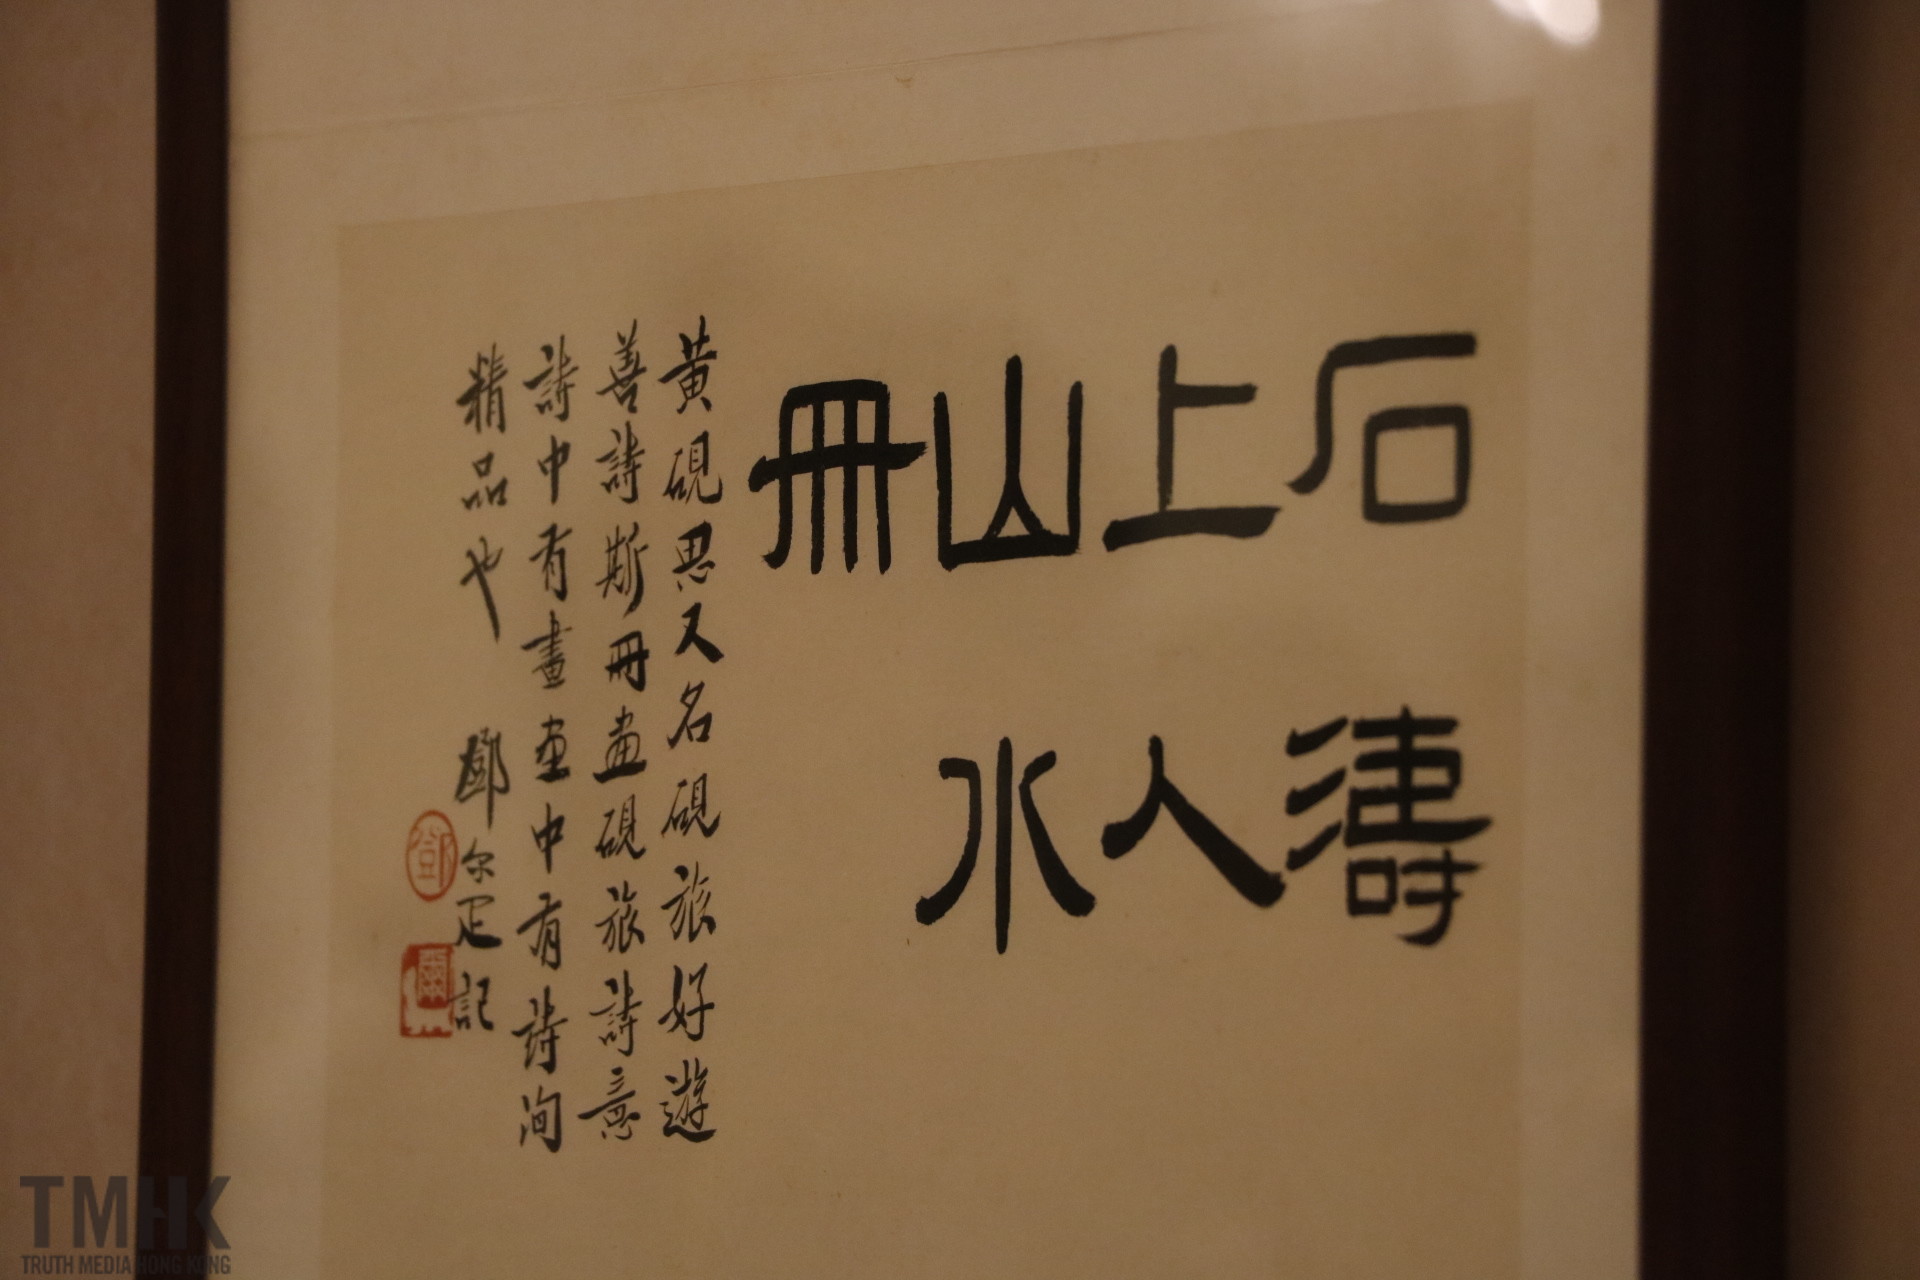 石濤
上人
山水
冊
黃硯思又名硯旅好遊
善詩斯冊畫硯旅詩意
詩中有畫畫中有詩洵
精品也 鄧尔疋記
鄧
爾
TMHK
TRUTH MEDIA HONG KONG